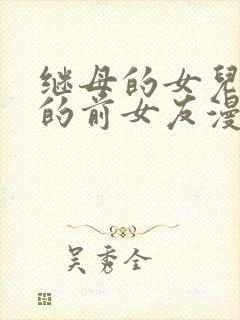 继母的女兒
的前女友漫
吴秀全